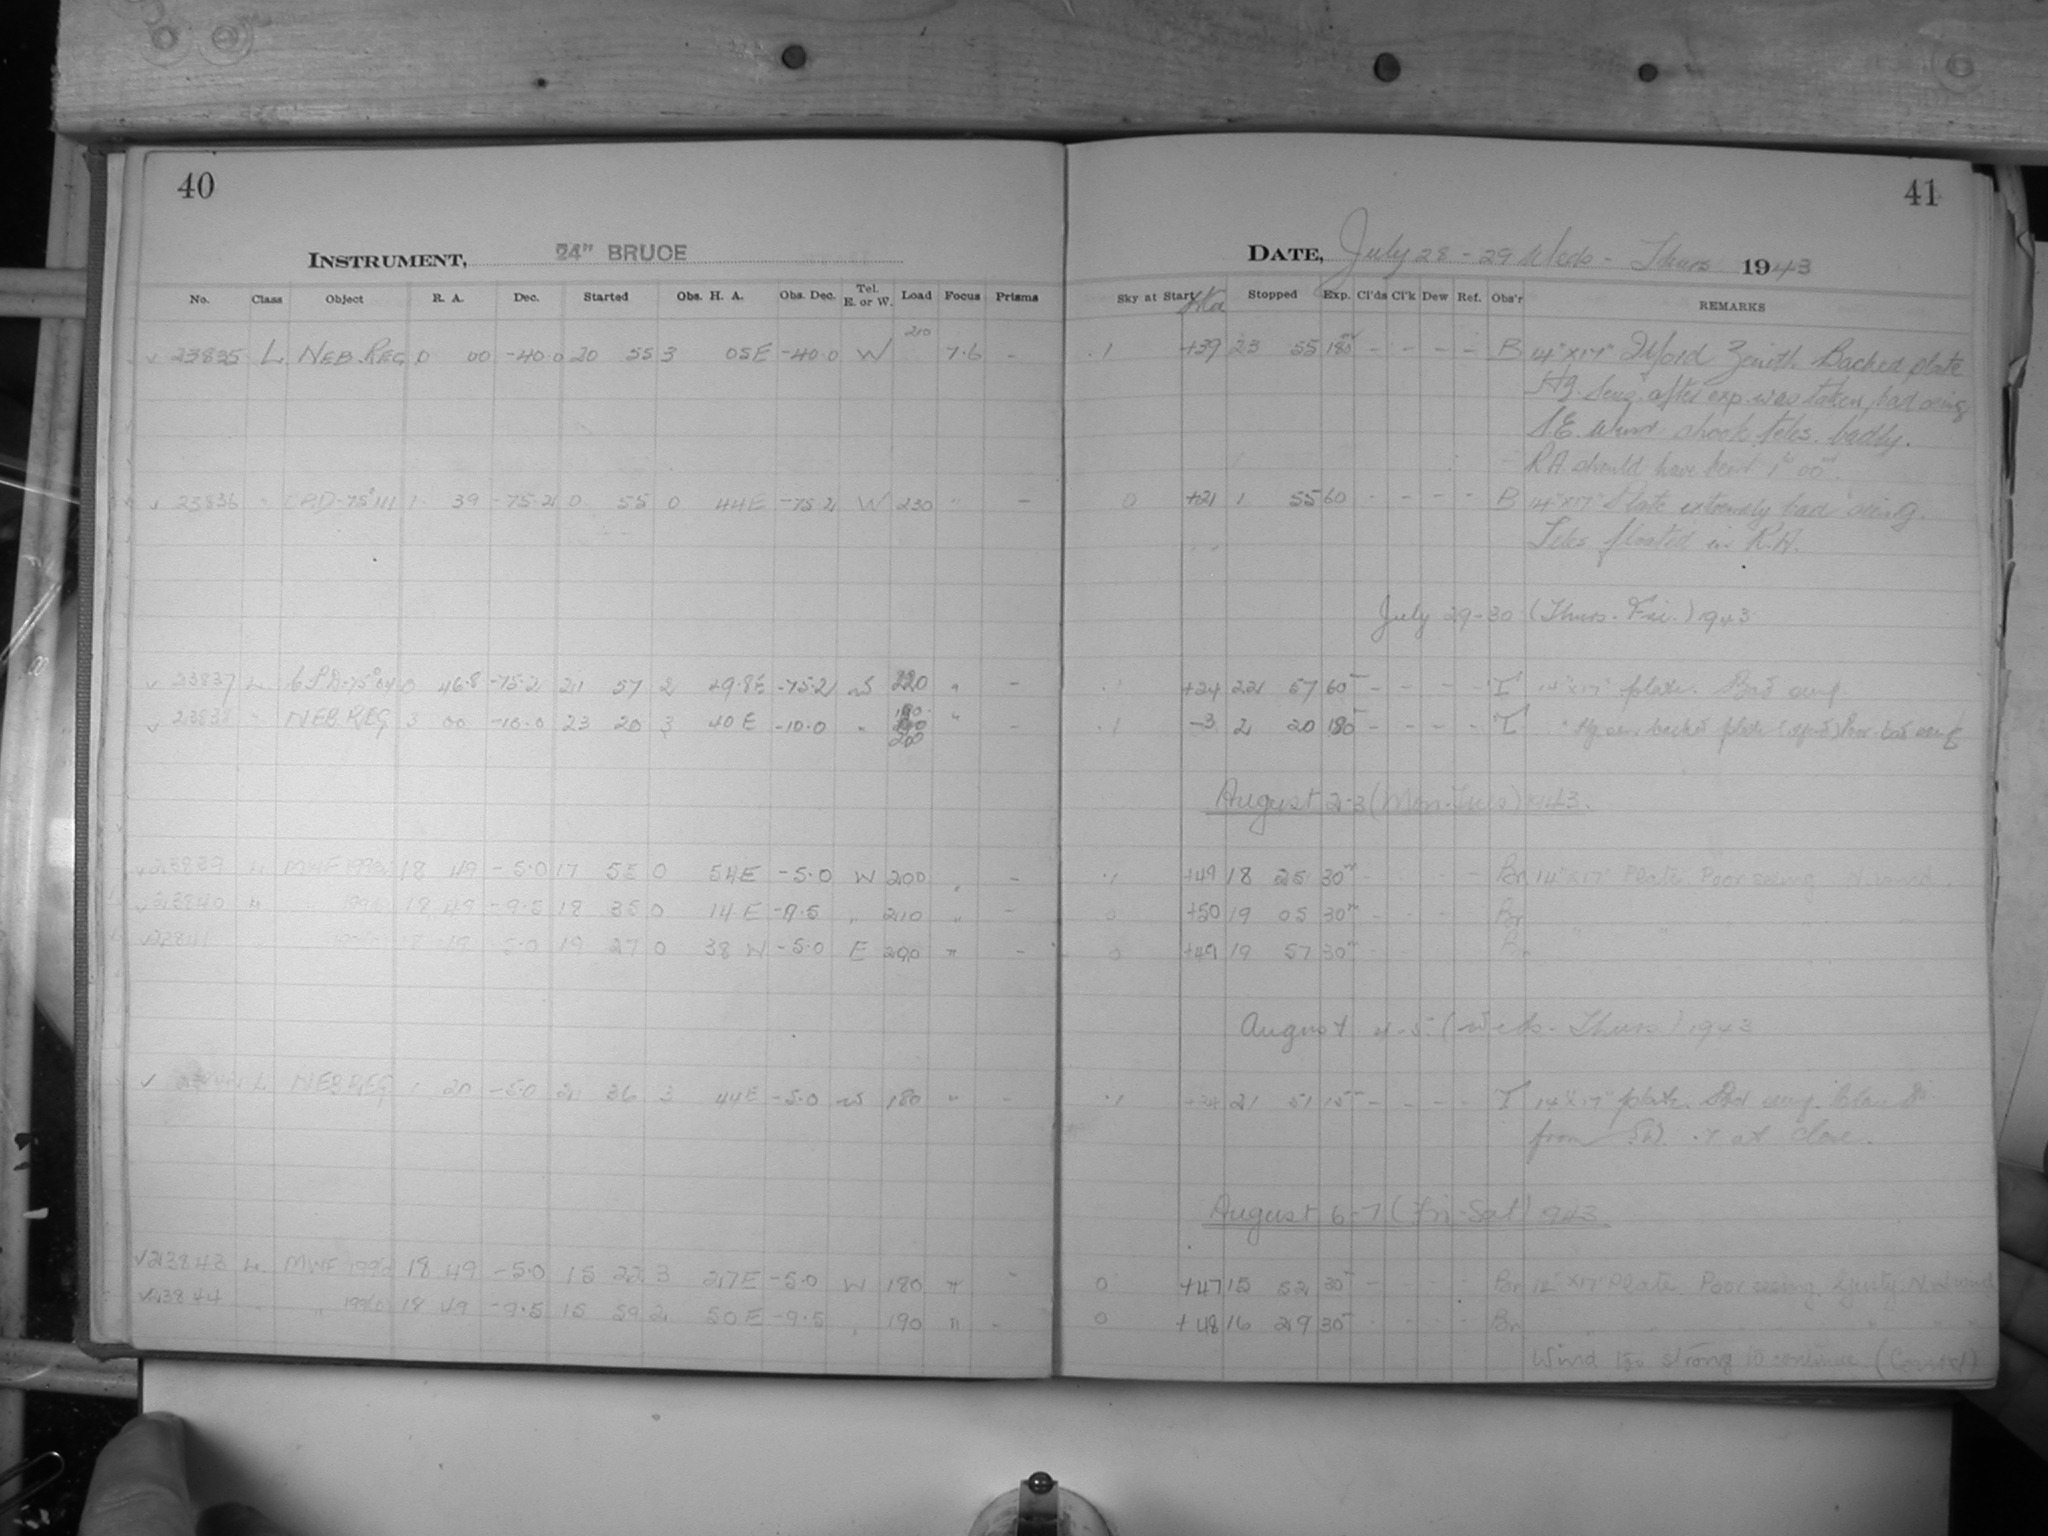 40
INSTRUMENT, 24" BRUCE
No. Class Object R. A. Dec. Started Obs. H. A. Obs. Dec. Tel. E. or W. Load Focus Prisms
210
√ 23835 L NEB. REG. 0 00 -40.0 20 55 3 05E -40.0 W 7.6 -
√ 23836 " CPD-75°111 1 39 -75.2 0 55 0 44E -75.2 W 230 " -
√ 23837 L CPD-75°64 0 46.8 -75.2 21 57 2 49.8E -75.2 W 220 " -
√ 23838 " NEB. REG. 3 00 -10.0 23 20 3 40E -10.0 " 200 " -
√ 23839 L MWF 18 49 -5.0 17 55 0 54E -5.0 W 200 " -
√ 23840 " 18 49 -9.5 18 35 0 14E -9.5 " 210 " -
√ 23841 18 49 -5.0 19 27 0 38 W -5.0 E 200 " -
√ L NEB. REG 1 20 -5.0 21 36 3 44E -5.0 W 180 " -
√ 23843 L MWF 18 49 -5.0 15 22 3 27E -5.0 W 180 " -
√ 23844 " 18 49 -9.5 15 59 2 50E -9.5 " 190 " -
41
DATE, July 28-29 Weds - Thurs 1943
Sky at Start Stopped Exp. Cl'ds Cl'k Dew Ref. Obs'r REMARKS
.1 +39 23 55 180m - - - - B 14"x17" Ilford Zenith Backed plate
Hg. Sens. after exp. was taken, bad seeing
S.E. Wind shook teles. badly.
R.A. should have been 1h 00m.
0 +21 1 55 60 - - - - B 14"x17" Plate extremely bad seeing.
Teles floated in R.A.
July 29-30 (Thurs-Fri.) 1943
.1 +24 22 57 60 - - - - T 14"x17" plate. Bad seeing.
.1 -3 2 20 180 - - - - T " Hg sens. backed plate bad seeing
August 2-3 (Mon-Tues) 1943.
.1 +49 18 25 30m - - Br 14"x17" Plate Poor seeing N. wind.
0 +50 19 05 30m - - Br " " "
0 +49 19 57 30m Br
August 4-5 (Weds - Thurs) 1943
.1 21 51 15 - - - - T 14"x17" plate. Bad seeing.
from SW. .7 at close.
August 6-7 (Fri-Sat) 1943
0 +47 15 52 30 - Br 14"x17" Plate Poor seeing Gusty N. wind
0 +48 16 29 30 Br " " " "
Wind too strong to continue (Cont'd)